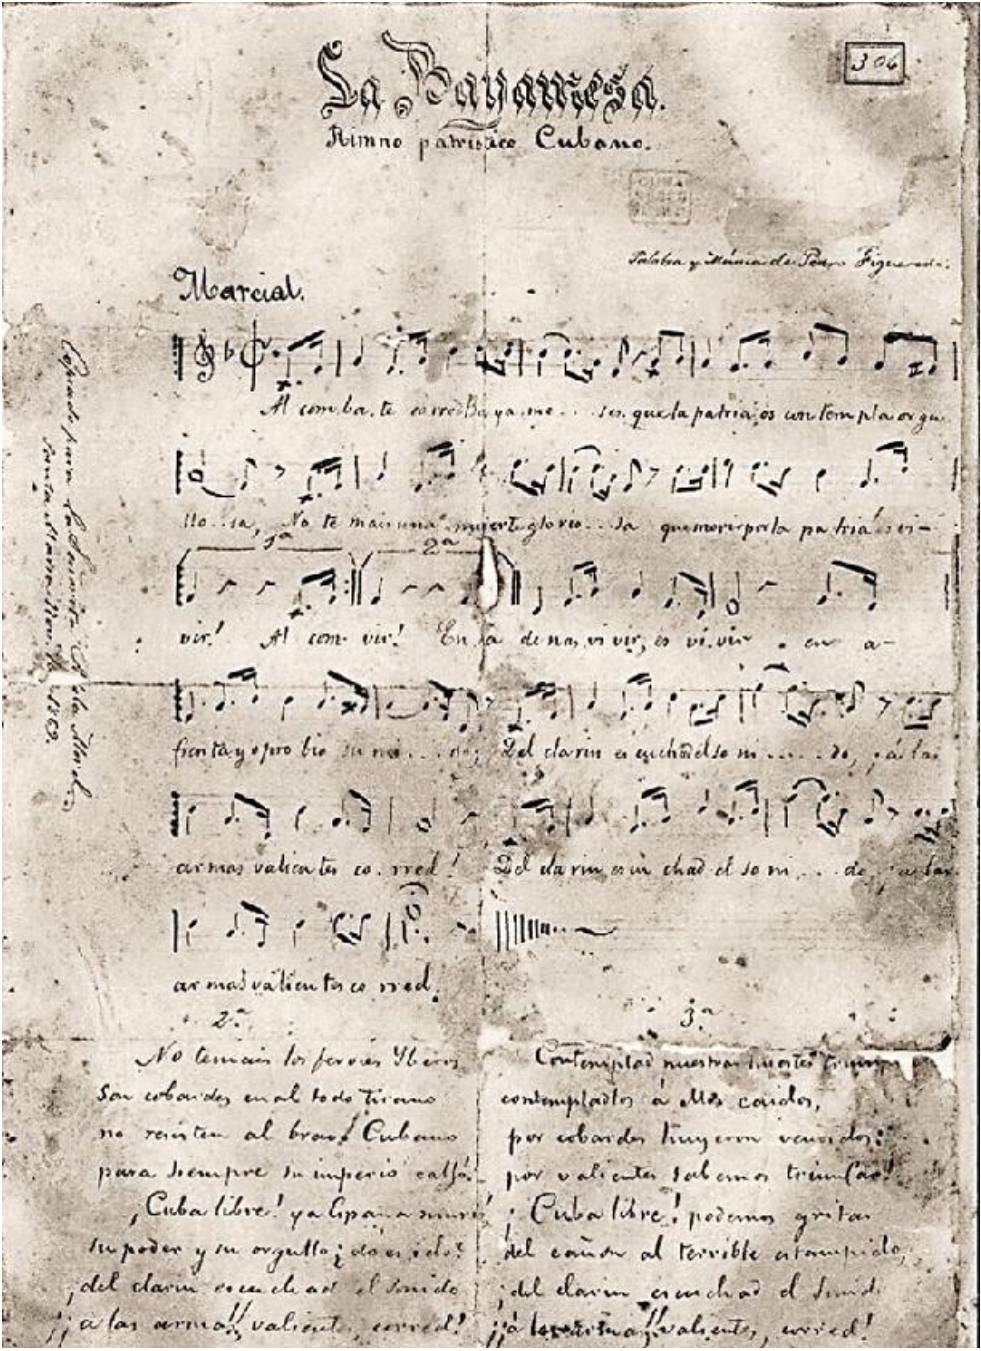 306
La Bayamesa.
Himno patriótico Cubano.
Palabra y Música de Pedro Figueredo.
Marcial.
Al com.ba.te corred Ba ya me . . ses. que la patria os contempla orgu
llo..sa, No te mais una muerte glorio...sa que morir por la pa tria es vi-
1ª 2ª
vir! Al com- vir! En ca de nas vi vir, es vi.vir . en a-
frenta y o pro bio su mi....do; Del clarin es cuchad el so ni.....do, ; á las
armas valientes co.rred! Del cla rin, es cu chad el so ni...do, ; a las
ar mas valientes co rred!
Copiado para la Señorita
Santa Maria 1869.
2ª
No temais los feroces Yberos
Son cobardes cual todo Tirano
no resisten al bravo Cubano
para siempre su imperio calló.
¡Cuba libre! ya España murió
su poder y su orgullo ¿dó es ido?
¡del clarin escuchad el sonido
¡¡a las armas!! valientes, corred!
3ª
Contemplad nuestras huestes triunfantes
contempladlos á ellos caidos,
por cobardes huyeron vencidos:
por valientes sabemos triunfar!
¡Cuba libre! podemos gritar
del cañon al terrible estampido,
¡del clarin escuchad el sonido
¡¡á las armas!! valientes, corred!